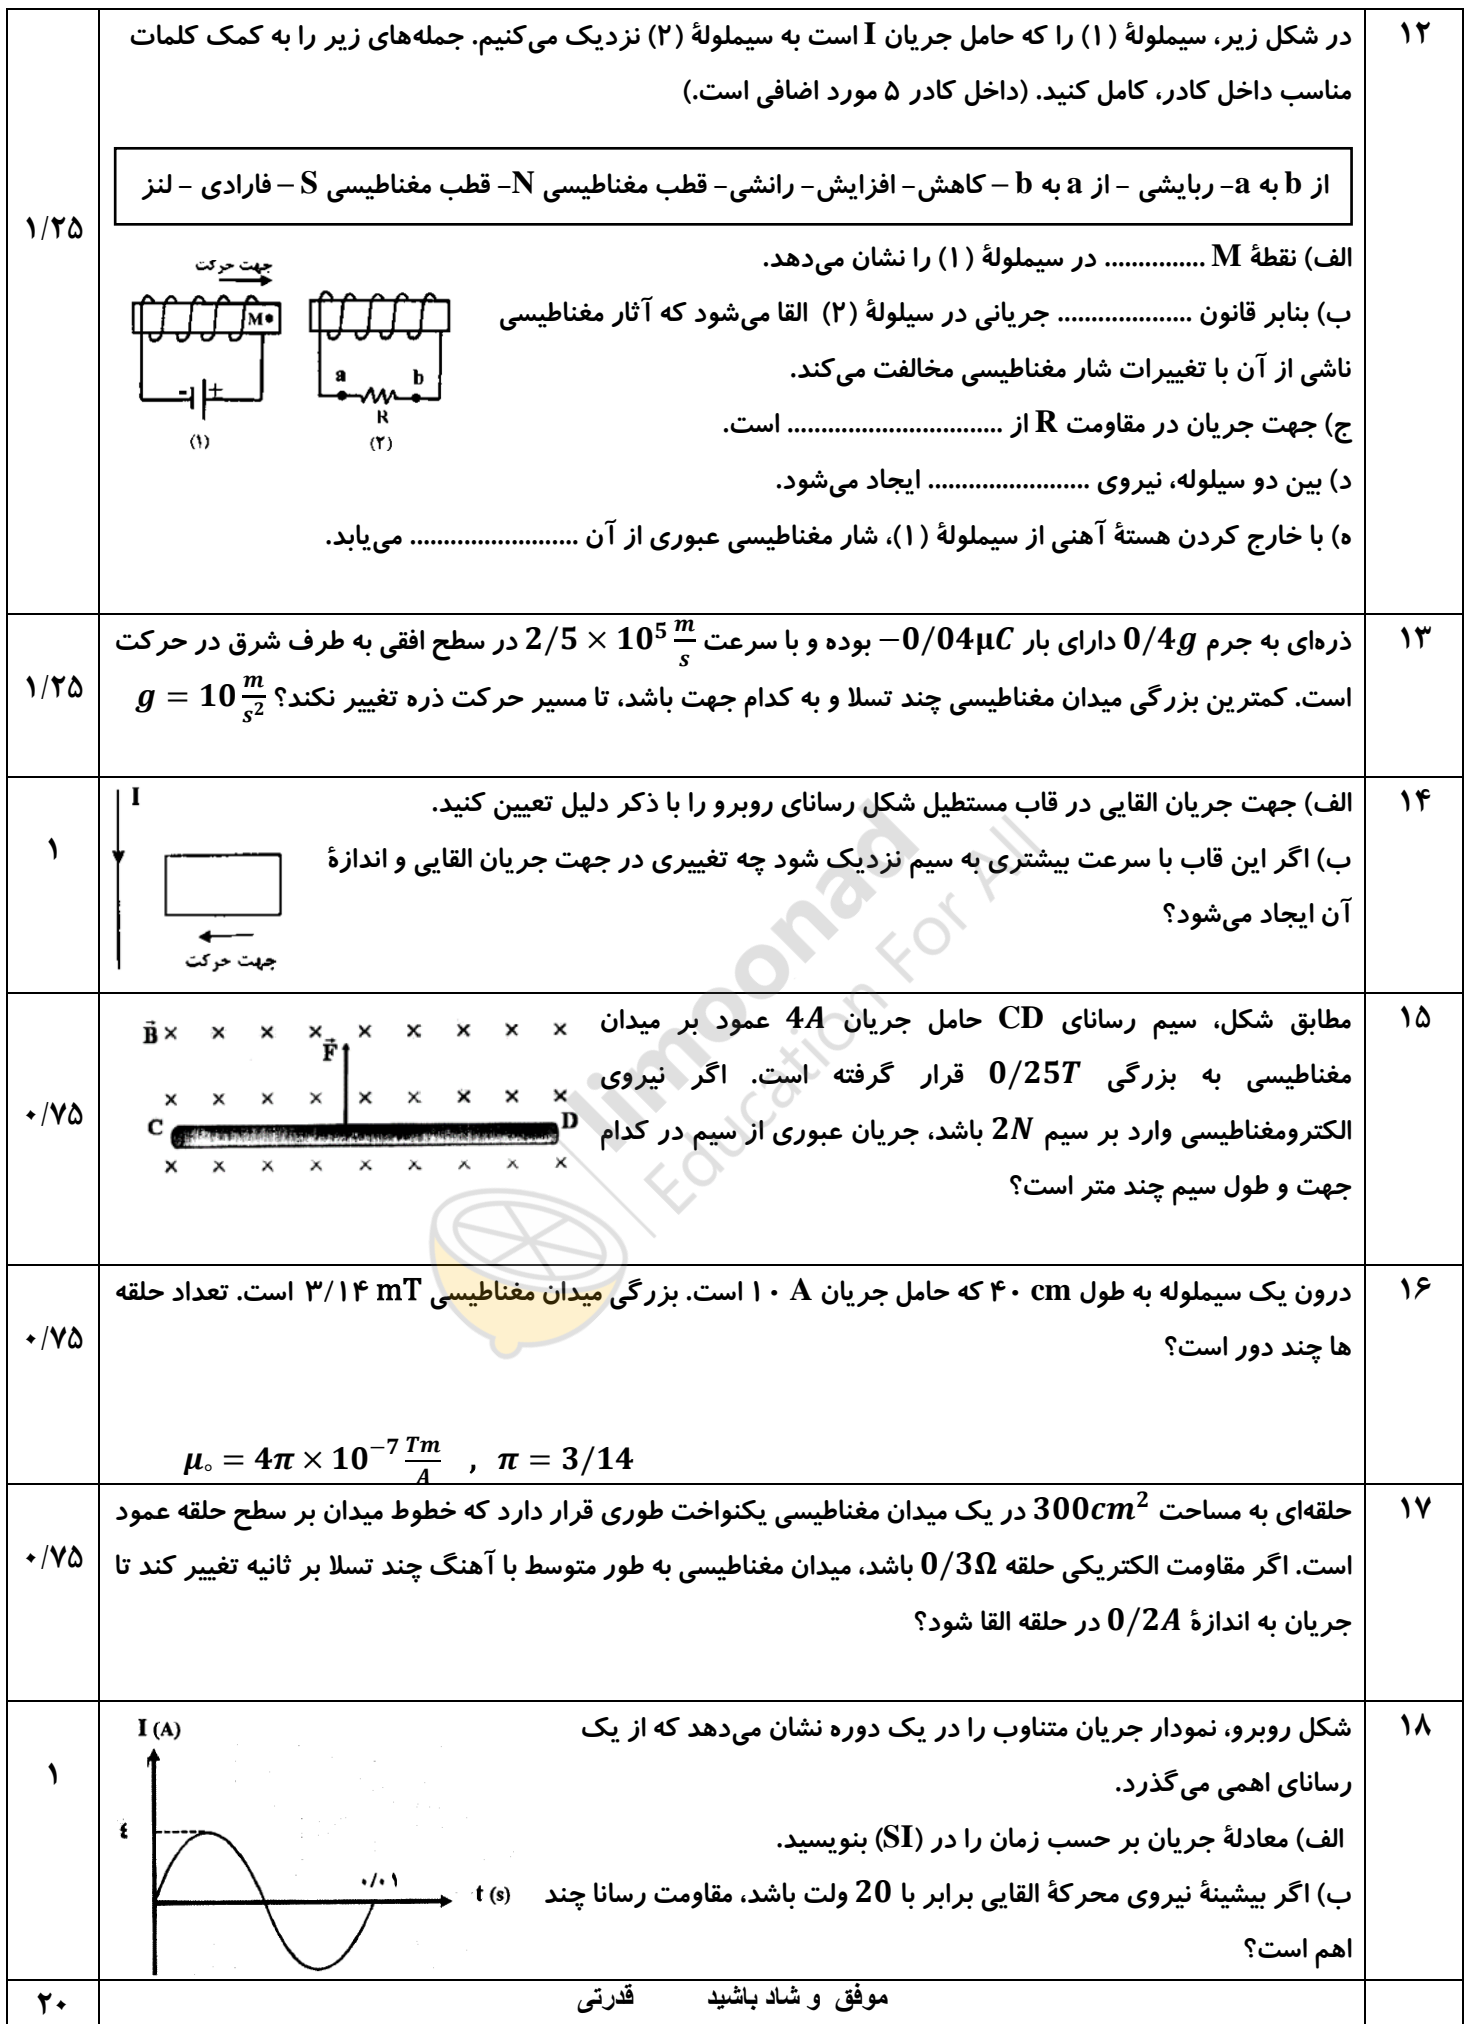 ۱۲
در شکل زیر، سیملولهٔ (۱) را که حامل جریان I است به سیملولهٔ (۲) نزدیک می‌کنیم. جمله‌های زیر را به کمک کلمات
مناسب داخل کادر، کامل کنید. (داخل کادر ۵ مورد اضافی است.)
از b به a- ربایشی - از a به b – کاهش- افزایش- رانشی- قطب مغناطیسی N- قطب مغناطیسی S – فارادی - لنز
۱/۲۵
الف) نقطهٔ M ............... در سیملولهٔ (۱) را نشان می‌دهد.
ب) بنابر قانون .................... جریانی در سیلولهٔ (۲) القا می‌شود که آثار مغناطیسی
ناشی از آن با تغییرات شار مغناطیسی مخالفت می‌کند.
ج) جهت جریان در مقاومت R از ................................ است.
د) بین دو سیلوله، نیروی ........................ ایجاد می‌شود.
ه) با خارج کردن هستهٔ آهنی از سیملولهٔ (۱)، شار مغناطیسی عبوری از آن ......................... می‌یابد.
جهت حرکت
M
- +
(۱)
a b
R
(۲)
۱۳
ذره‌ای به جرم 0/4g دارای بار −0/04μC بوده و با سرعت 2/5 × 10⁵ m/s در سطح افقی به طرف شرق در حرکت
است. کمترین بزرگی میدان مغناطیسی چند تسلا و به کدام جهت باشد، تا مسیر حرکت ذره تغییر نکند؟ g = 10 m/s²
۱/۲۵
۱۴
الف) جهت جریان القایی در قاب مستطیل شکل رسانای روبرو را با ذکر دلیل تعیین کنید.
ب) اگر این قاب با سرعت بیشتری به سیم نزدیک شود چه تغییری در جهت جریان القایی و اندازهٔ
آن ایجاد می‌شود؟
۱
I
جهت حرکت
۱۵
مطابق شکل، سیم رسانای CD حامل جریان 4A عمود بر میدان
مغناطیسی به بزرگی 0/25T قرار گرفته است. اگر نیروی
الکترومغناطیسی وارد بر سیم 2N باشد، جریان عبوری از سیم در کدام
جهت و طول سیم چند متر است؟
۰/۷۵
B⃗ × × × × × × × × ×
F⃗
× × × × × × × × ×
C D
× × × × × × × × ×
۱۶
درون یک سیملوله به طول ۴۰ cm که حامل جریان ۱۰ A است. بزرگی میدان مغناطیسی ۳/۱۴ mT است. تعداد حلقه
ها چند دور است؟
۰/۷۵
μ₀ = 4π × 10⁻⁷ Tm/A , π = 3/14
۱۷
حلقه‌ای به مساحت 300cm² در یک میدان مغناطیسی یکنواخت طوری قرار دارد که خطوط میدان بر سطح حلقه عمود
است. اگر مقاومت الکتریکی حلقه 0/3Ω باشد، میدان مغناطیسی به طور متوسط با آهنگ چند تسلا بر ثانیه تغییر کند تا
جریان به اندازهٔ 0/2A در حلقه القا شود؟
۰/۷۵
۱۸
شکل روبرو، نمودار جریان متناوب را در یک دوره نشان می‌دهد که از یک
رسانای اهمی می‌گذرد.
الف) معادلهٔ جریان بر حسب زمان را در (SI) بنویسید.
ب) اگر بیشینهٔ نیروی محرکهٔ القایی برابر با 20 ولت باشد، مقاومت رسانا چند
اهم است؟
۱
I (A)
٤
۰/۰۱
t (s)
موفق و شاد باشید قدرتی
۲۰
limoonad
Education For All